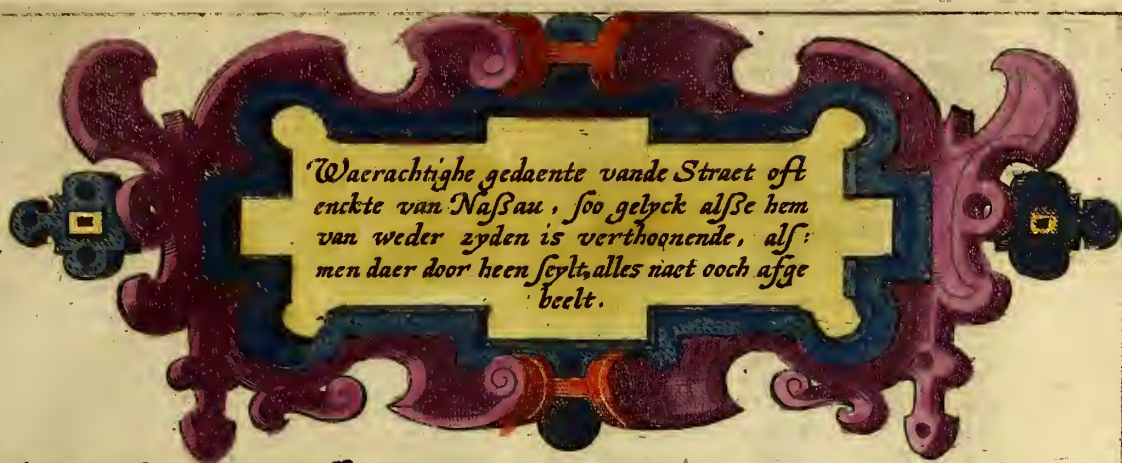 Waerachtighe gedaente vande Straet oft
enckte van Naßau, soo gelyck alsse hem
van weder zyden is verthoonende, als:
men daer door heen seylt, alles naet ooch afge
beelt.